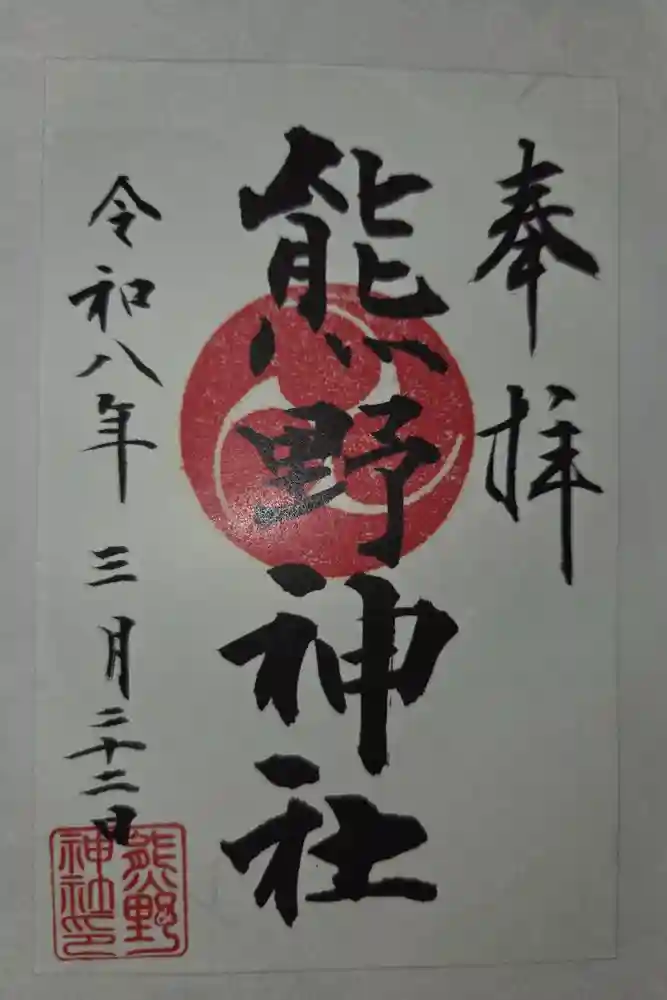 奉拝
熊野神社
令和八年 三月二十二日
熊野
神社印